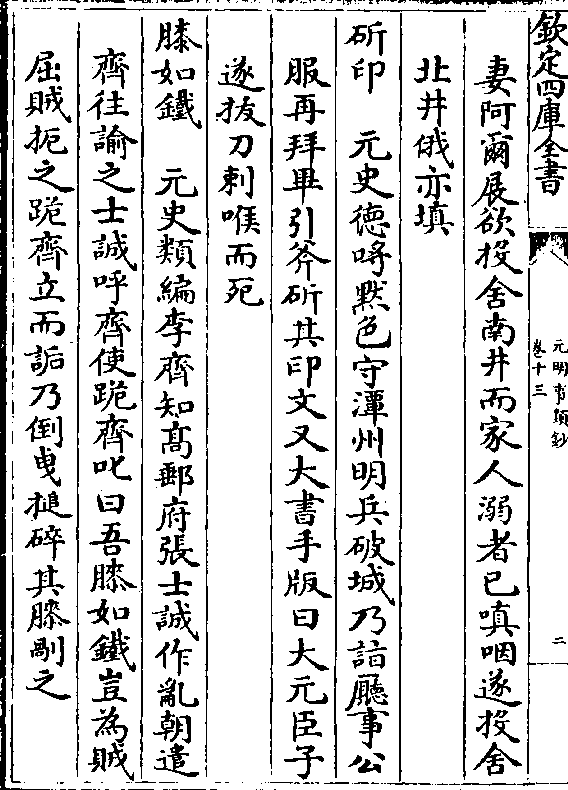 欽定四庫全書
元明事類鈔
卷十三
二
妻阿爾展欲投舍南井而家人溺者已嗔咽遂投舍
北井俄亦填
斫印　元史德哷黙色守潭州明兵破城乃詣廳事公
服再拜畢引斧斫其印文又大書手版曰大元臣子
遂拔刀刺喉而死
膝如鐵　元史類編李齊知髙郵府張士誠作亂朝遣
齊往諭之士誠呼齊使跪齊叱曰吾膝如鐵豈為賊
屈賊扼之跪齊立而詬乃倒曳搥碎其膝剮之